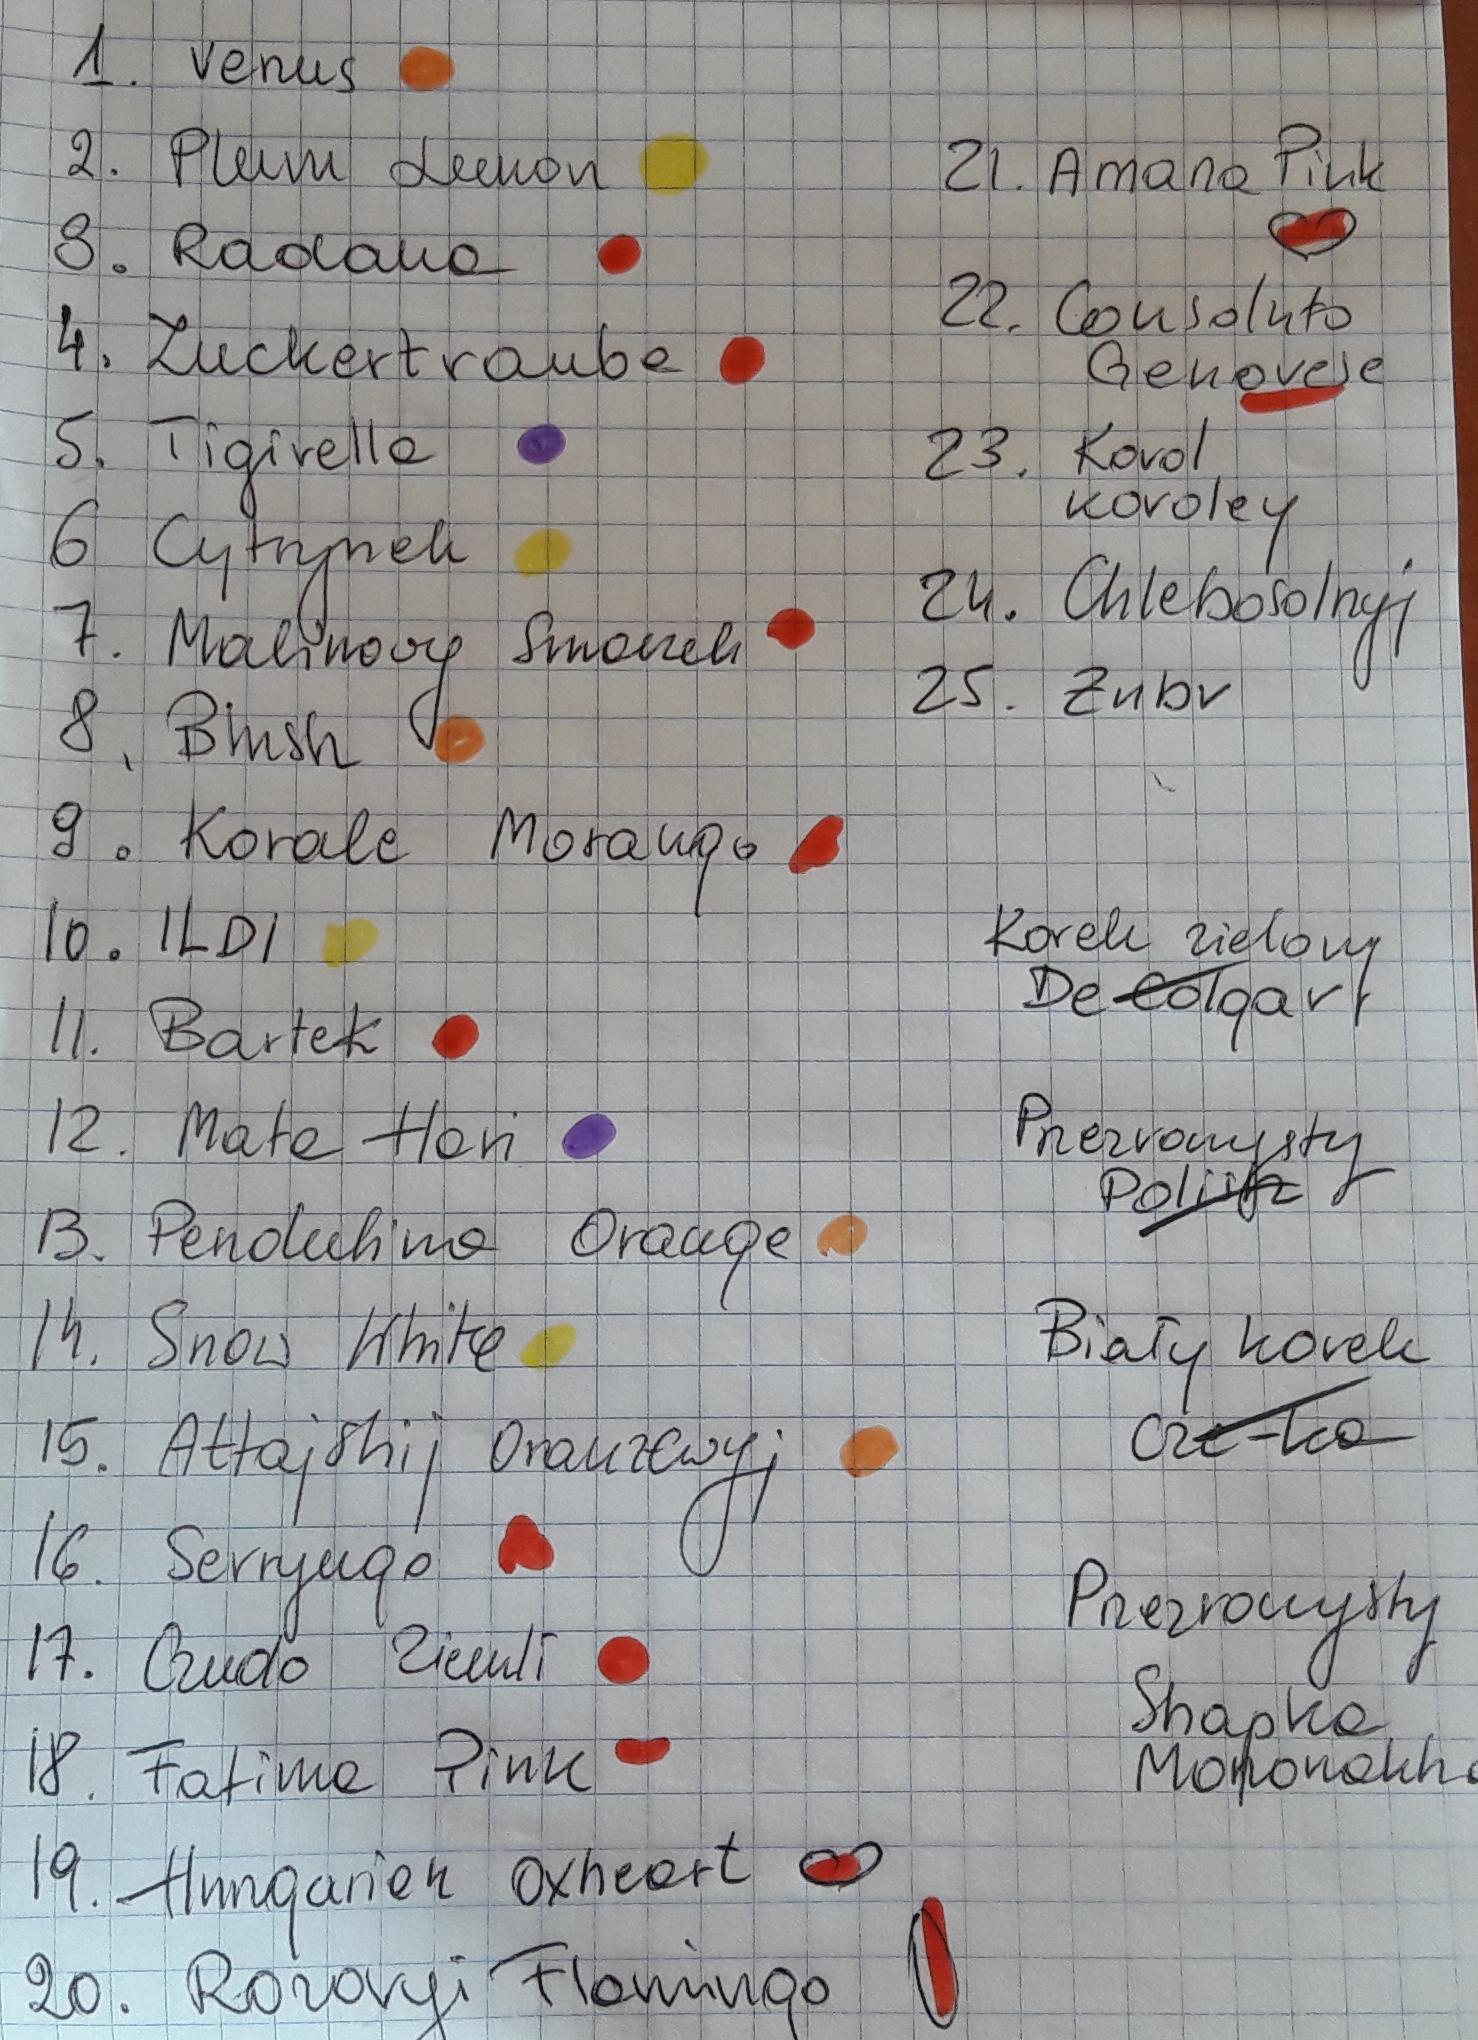 1. Venus
2. Plum Lemon
3. Radana
4. Zuckertraube
5. Tigirella
6 Cytrynek
7. Malinowy Smaczek
8. Blush
9. Korale Morango
10. ILDI
11. Bartek
12. Mata Hari
13. Pendulina Orange
14. Snow White
15. Ałtajskij Oranżewyj
16.
17. Czudo Ziemli
18. Fatima Pink
19. Hungarian Oxheart
20. Rozovyi Flamingo
21. Amana Pink
22. Consoluto
Genovese
23. Korol
koroley
24. Chlebosolnyj
25. Zubr
Korek zielony
De Colgar
Przezroczysty
Biały korek
Przezroczysty
Shapka
Monomakha